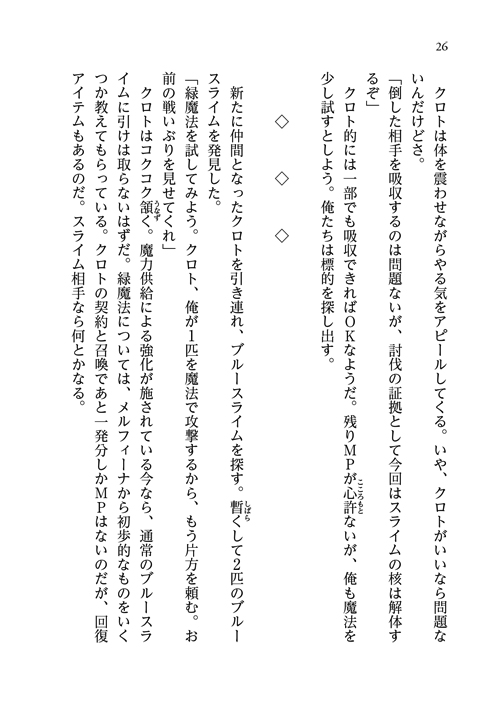 26
クロトは体を震わせながらやる気をアピールしてくる。いや、クロトがいいなら問題な
いんだけどさ。
「倒した相手を吸収するのは問題ないが、討伐の証拠として今回はスライムの核は解体す
るぞ」
クロト的には一部でも吸収できればOKなようだ。残りMPが心許ないが、俺も魔法を
こころもと
少し試すとしよう。俺たちは標的を探し出す。
◇ ◇ ◇
新たに仲間となったクロトを引き連れ、ブルースライムを探す。暫くして2匹のブルー
しばら
スライムを発見した。
「緑魔法を試してみよう。クロト、俺が1匹を魔法で攻撃するから、もう片方を頼む。お
前の戦いぶりを見せてくれ」
クロトはコクコク頷く。魔力供給による強化が施されている今なら、通常のブルースラ
うなず
イムに引けは取らないはずだ。緑魔法については、メルフィーナから初歩的なものをいく
つか教えてもらっている。クロトの契約と召喚であと一発分しかMPはないのだが、回復
アイテムもあるのだ。スライム相手なら何とかなる。